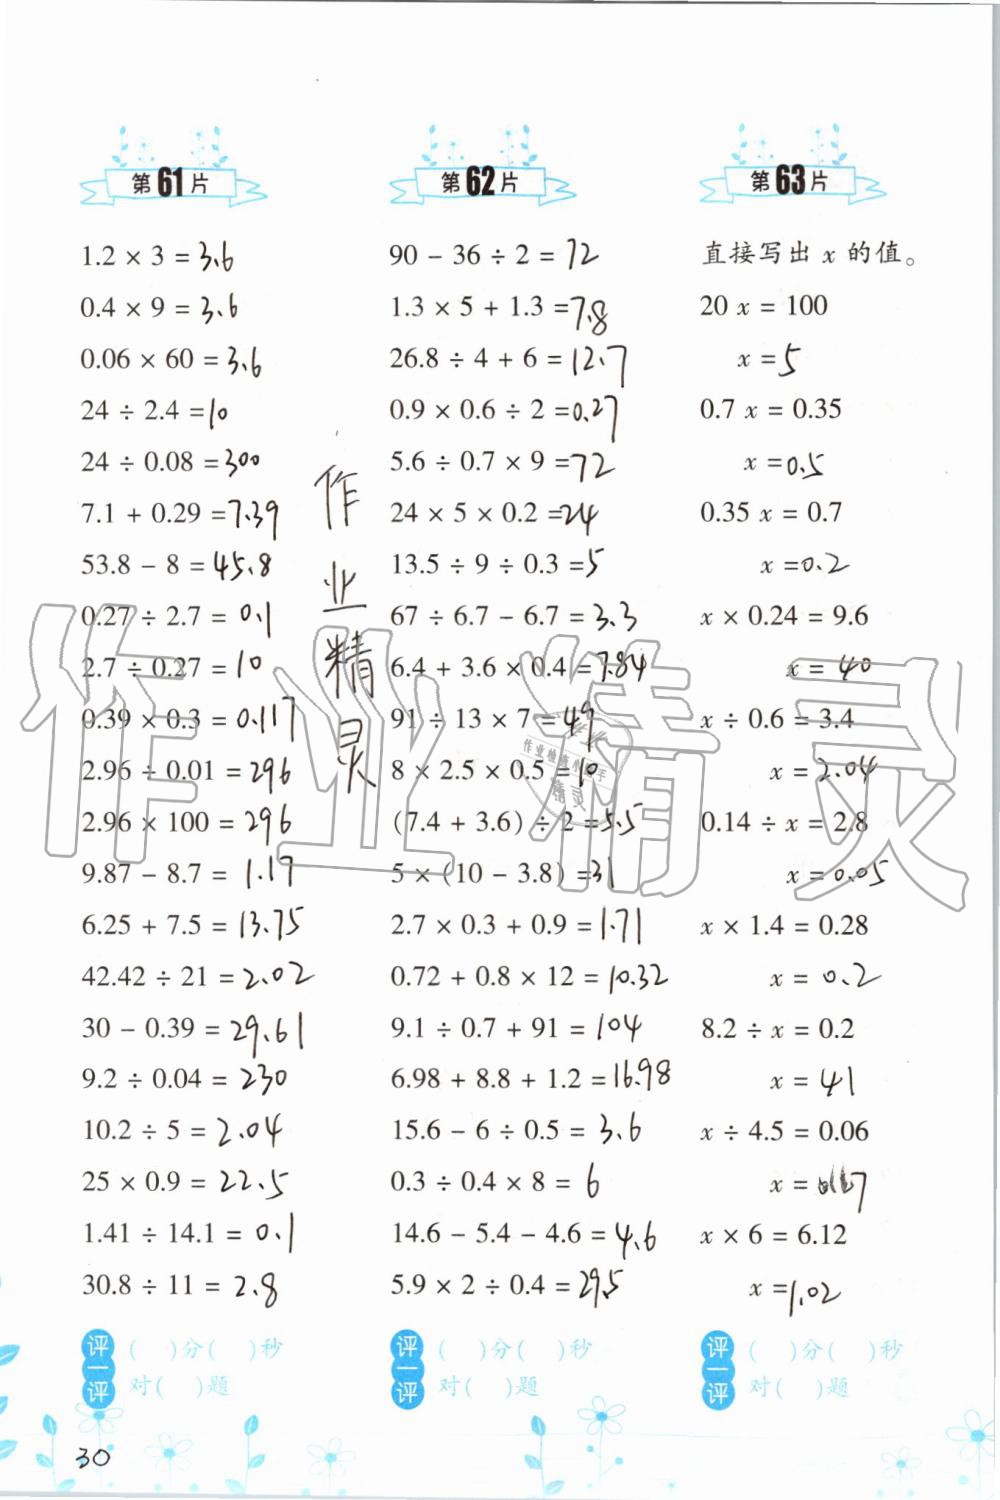 第61片
1.2 × 3 = 3.6
0.4 × 9 = 3.6
0.06 × 60 = 3.6
24 ÷ 2.4 = 10
24 ÷ 0.08 = 300
7.1 + 0.29 = 7.39
53.8 − 8 = 45.8
0.27 ÷ 2.7 = 0.1
2.7 ÷ 0.27 = 10
0.39 × 0.3 = 0.117
2.96 ÷ 0.01 = 296
2.96 × 100 = 296
9.87 − 8.7 = 1.17
6.25 + 7.5 = 13.75
42.42 ÷ 21 = 2.02
30 − 0.39 = 29.61
9.2 ÷ 0.04 = 230
10.2 ÷ 5 = 2.04
25 × 0.9 = 22.5
1.41 ÷ 14.1 = 0.1
30.8 ÷ 11 = 2.8
评一评
( )分( )秒
对( )题
作业精灵
第62片
90 − 36 ÷ 2 = 72
1.3 × 5 + 1.3 = 7.8
26.8 ÷ 4 + 6 = 12.7
0.9 × 0.6 ÷ 2 = 0.27
5.6 ÷ 0.7 × 9 = 72
24 × 5 × 0.2 = 24
13.5 ÷ 9 ÷ 0.3 = 5
67 ÷ 6.7 − 6.7 = 3.3
6.4 + 3.6 × 0.4 = 7.84
91 ÷ 13 × 7 = 49
8 × 2.5 × 0.5 = 10
(7.4 + 3.6) ÷ 2 = 5.5
5 × (10 − 3.8) = 31
2.7 × 0.3 + 0.9 = 1.71
0.72 + 0.8 × 12 = 10.32
9.1 ÷ 0.7 + 91 = 104
6.98 + 8.8 + 1.2 = 16.98
15.6 − 6 ÷ 0.5 = 3.6
0.3 ÷ 0.4 × 8 = 6
14.6 − 5.4 − 4.6 = 4.6
5.9 × 2 ÷ 0.4 = 29.5
评一评
( )分( )秒
对( )题
第63片
直接写出 x 的值。
20 x = 100
x = 5
0.7 x = 0.35
x = 0.5
0.35 x = 0.7
x = 0.2
x × 0.24 = 9.6
x = 40
x ÷ 0.6 = 3.4
x = 2.04
0.14 ÷ x = 2.8
x = 0.05
x × 1.4 = 0.28
x = 0.2
8.2 ÷ x = 0.2
x = 41
x ÷ 4.5 = 0.06
x =
x × 6 = 6.12
x = 1.02
评一评
( )分( )秒
对( )题
30
作业精灵
精灵